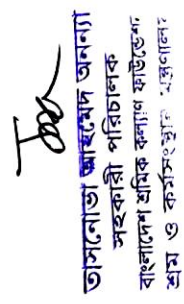 তাসনোভা আহমেদ অনন্যা
সহকারী পরিচালক
বাংলাদেশ শ্রমিক কল্যাণ ফাউন্ডেশন
শ্রম ও কর্মসংস্থান মন্ত্রণালয়